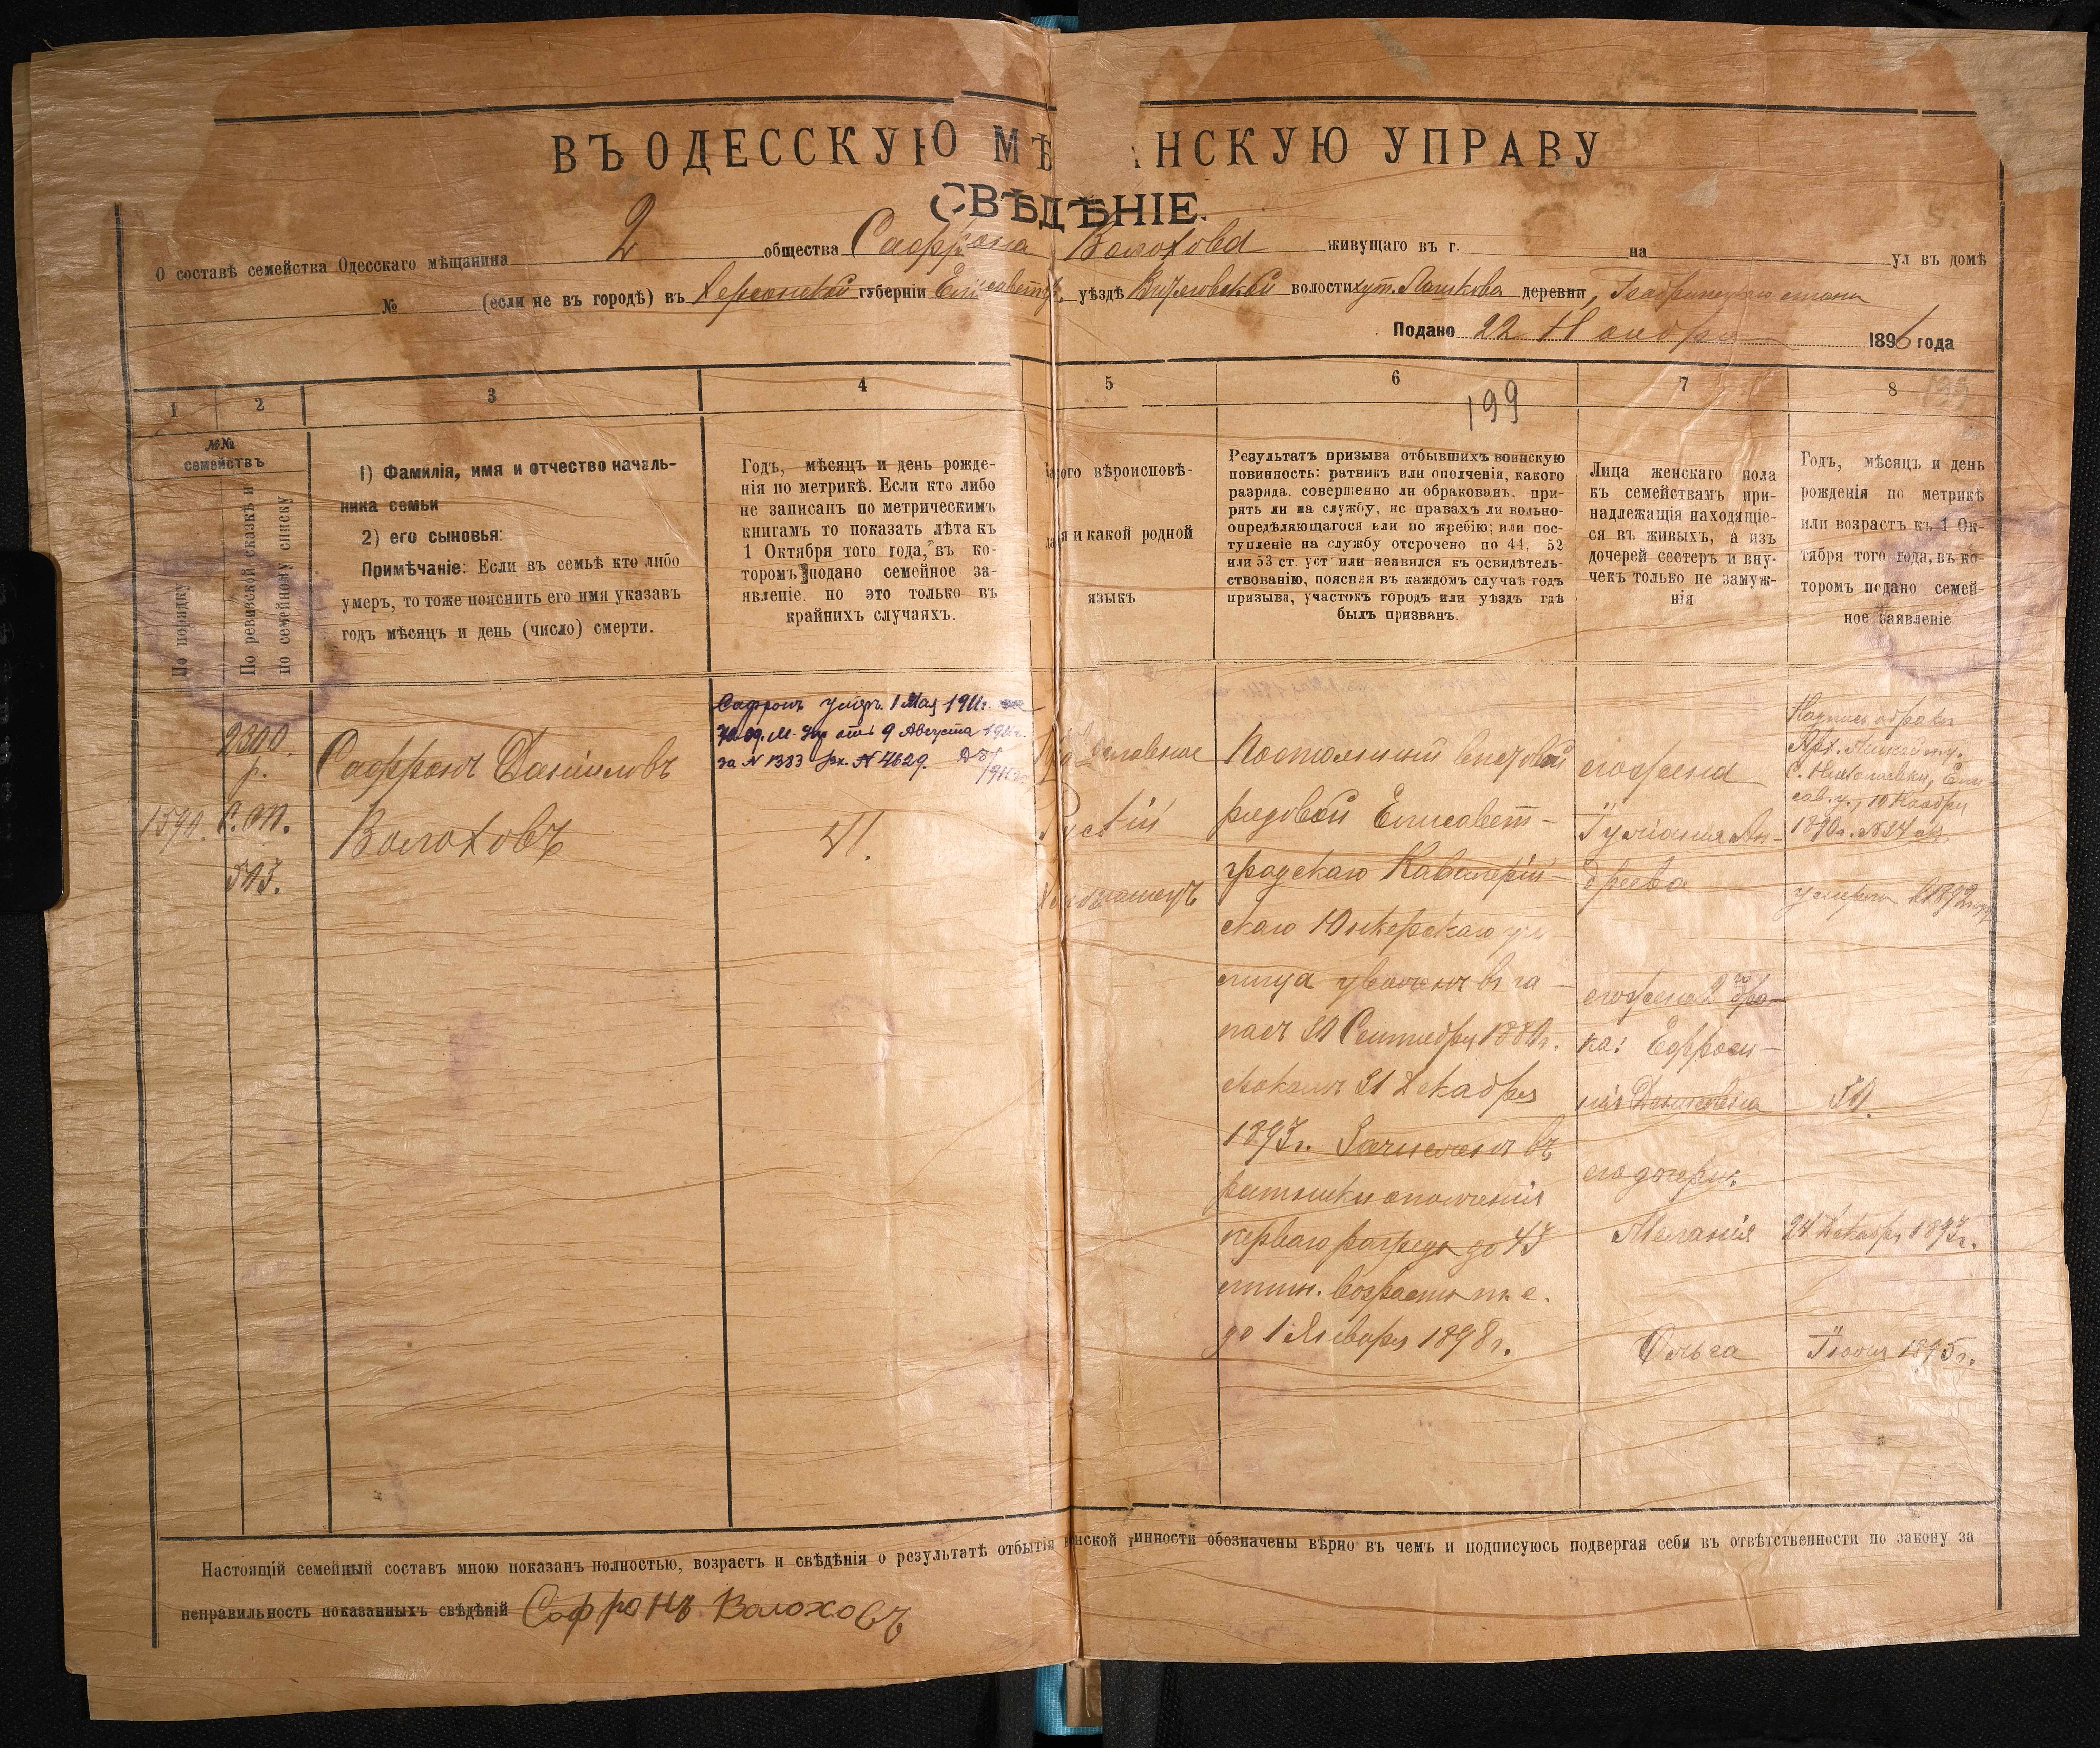 ВЪ ОДЕССКУЮ МѢ НСКУЮ УПРАВУ
СВѢДѢНІЕ.
О составѣ семейства Одесскаго мѣщанина 2 общества Сафрона Волохова живущаго въ г. на ул въ домѣ
№ (если не въ городѣ) въ Херсонской губерніи Елисаветгр. уѣздѣ волости хут. Лашкова деревни,
Подано 22 Ноября 1896 года
1 2 3 4 5 6 7 8
199
№№ семействъ
По порядку
По ревизской сказкѣ и
по семейному списку
1) Фамилія, имя и отчество началь-
ника семьи
2) его сыновья:
Примѣчаніе: Если въ семьѣ кто либо
умеръ, то тоже пояснить его имя указавъ
годъ мѣсяцъ и день (число) смерти.
Годъ, мѣсяцъ и день рожде-
нія по метрикѣ. Если кто либо
не записанъ по метрическимъ
книгамъ то показать лѣта къ
1 Октября того года, въ ко-
торомъ подано семейное за-
явленіе. но это только въ
крайнихъ случаяхъ.
кого вѣроисповѣ-
да я и какой родной
языкъ
Результатъ призыва отбывшихъ воинскую
повинность: ратникъ или ополченія, какого
разряда. совершенно ли обракованъ. при-
рять ли на службу, нс правахъ ли вольно-
опредѣляющагося или по жребію; или пос-
тупленіе на службу отсрочено по 44. 52
или 53 ст. уст или неявился къ освидѣтель-
ствованію, поясняя въ каждомъ случаѣ годъ
призыва, участокъ городъ или уѣздъ гдѣ
былъ призванъ.
Лица женскаго пола
къ семействамъ при-
надлежащія находящіе-
ся въ живыхъ, а изъ
дочерей сестеръ и вну-
чекъ только не замуж-
нія
Годъ, мѣсяцъ и день
рожденія по метрикѣ
или возрастъ къ 1 Ок-
тября того года, въ ко-
торомъ подано семей-
ное заявленіе
1590.
2300.
р.
с. сп.
503.
Сафронъ Даніиловъ
Волоховъ
Сафронъ умеръ 1 Мая 1911г.
Уд. Од. М. Упр отъ 9 Августа
за N 1383 Вх. N 4629.
41.
Православное
Русскій
рядовой Елисавет-
градскаго Кавалерій-
скаго Юнкерскаго учи-
лища уволенъ въ за-
пасъ 30 Сентября 1880г.
31 Декабря
1893г. Зачисленъ въ
ратники ополченія
перваго разряда до 43
лѣтн. возраста т. е.
до 1 Января 1898г.
его жена
Іуліанія Ан-
дреева
его жена 2го бра-
ка: Ефроси-
нія
его дочери:
Меланія
Ольга
С. Николаевки, Ели
умерла 1892
30.
24 Декабря 1893г.
1895г.
Настоящій семейный составъ мною показанъ полностью, возрастъ и свѣдѣнія о результатѣ отбытія инской инности обозначены вѣрно въ чемъ и подписуюсь подвергая себя въ отвѣтственности по закону за
неправильность показанныхъ свѣдѣній Софронъ Волоховъ